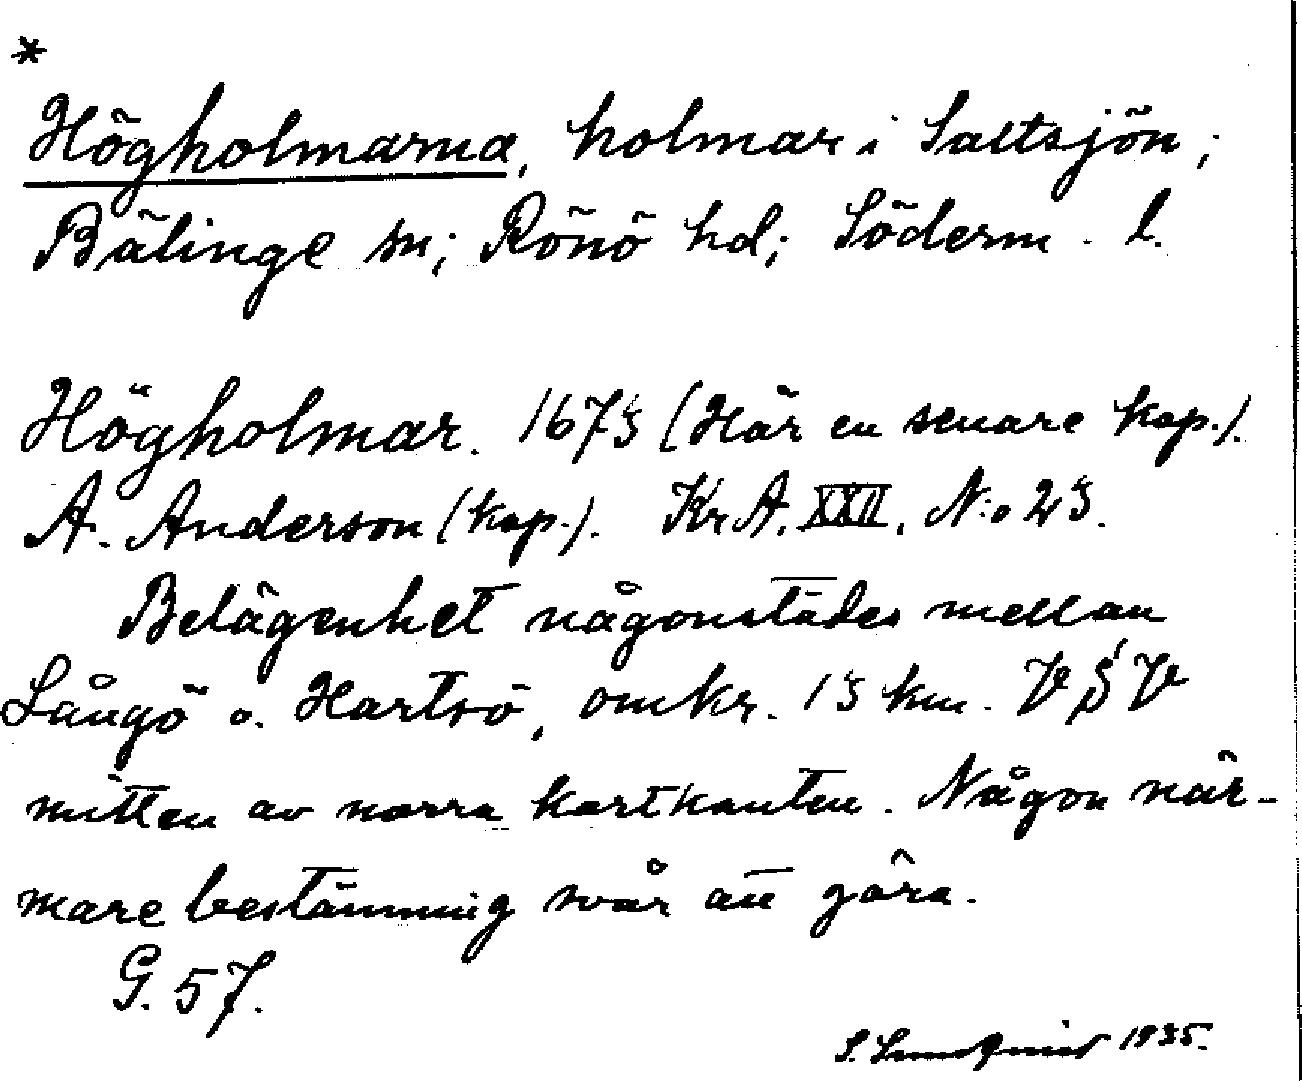 *
Högholmarna, holmar i Saltsjön;
Bälinge sn; Rönö hd; Söderm. l.
Högholmar. 1673 (Här en senare kop.).
A. Anderson (kop.). Kr. A. XXII. N:o 23.
Belägenhet någonstädes mellan
Långö o. Hartsö, omkr. 13 km. V S V
mitten av norra kartkanten. Någon när-
mare bestämning svår att göra.
G. 57.
S. Lundquist 1935.